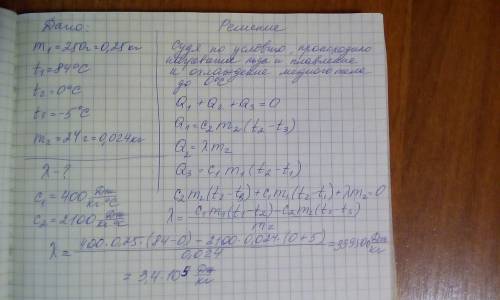 Дано:
m₁=250г=0,25кг
t₁=84°С
t₂=0°С
t₃=-5°С
m₂=24г=0,024кг
λ-?
c₁=400 Дж/кг°С
c₂=2100 Дж/кг°С
Решение
Судя по условию, происходило
нагревание льда и плавление
и охлаждение медного тела
до 0°С
Q₁+Q₂+Q₃=0
Q₁=c₂m₂(t₂-t₃)
Q₂=λm₂
Q₃=c₁m₁(t₂-t₁)
c₂m₂(t₂-t₃)+c₁m₁(t₂-t₁)+λm₂=0
λ=(c₁m₁(t₁-t₂)-c₂m₂(t₂-t₃))/m₂
λ=(400·0,25·(84-0)-2100·0,024(0+5))/0,024=339500 Дж/кг
=3,4·10⁵ Дж/кг